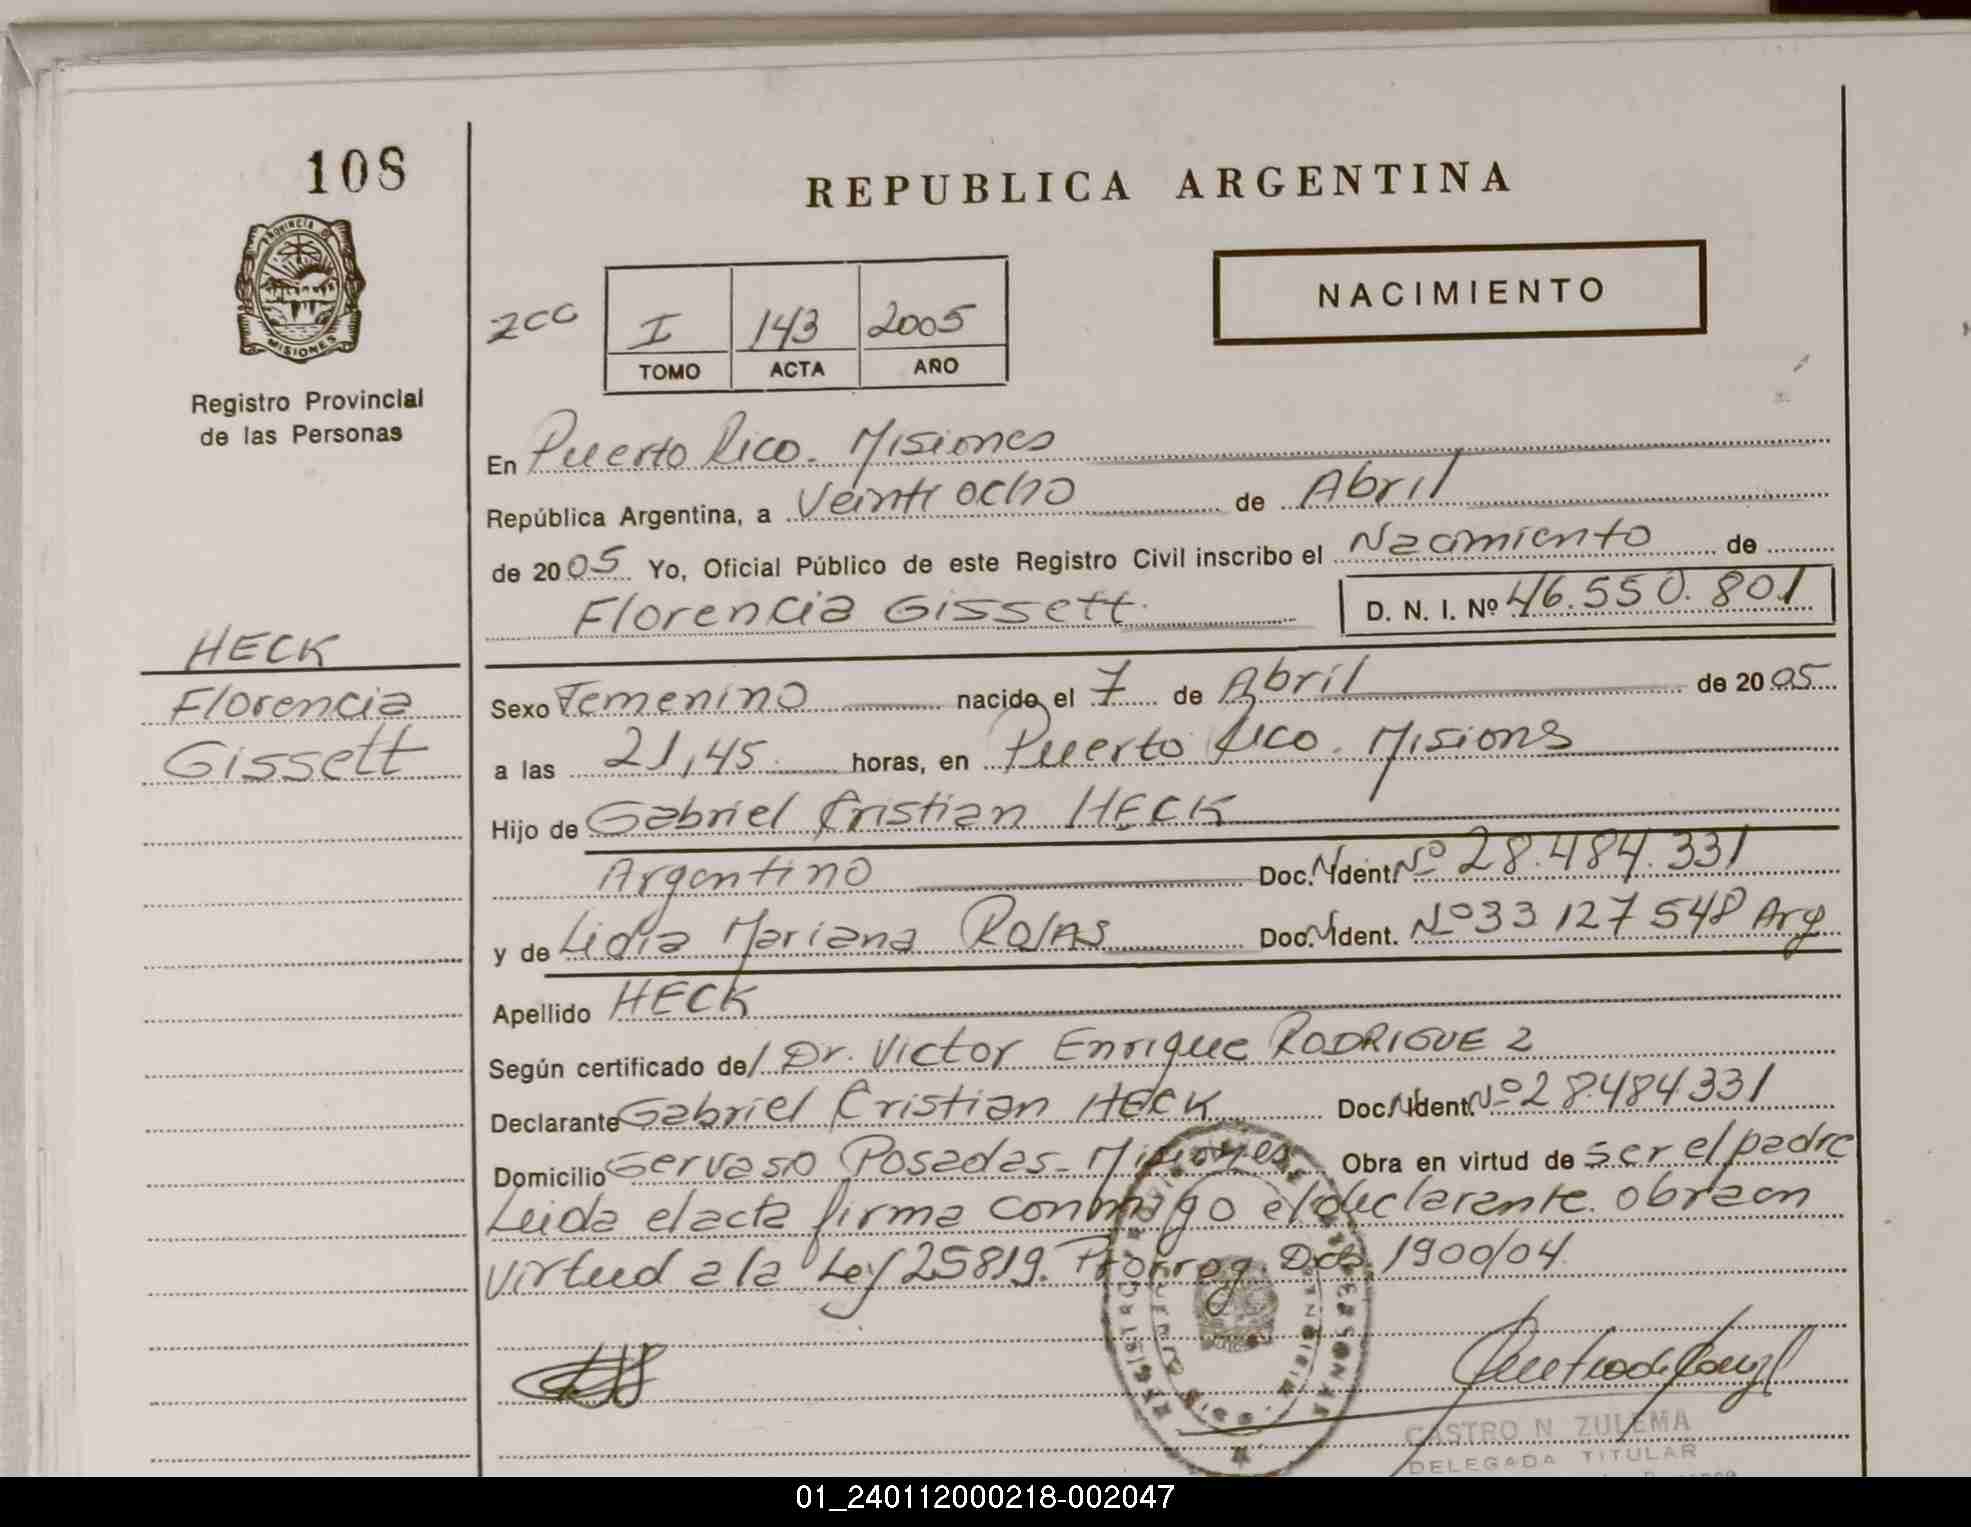 108
REPUBLICA ARGENTINA
PROVINCIA DE
MISIONES
NACIMIENTO
I 143 2005
TOMO ACTA AÑO
Registro Provincial
de las Personas
En Puerto Rico. Misiones
República Argentina, a Veinti ocho de Abril
de 2005 Yo, Oficial Público de este Registro Civil inscribo el Nacimiento de
Florencia Gissett D. N. I. Nº 46.550.801
HECK
Florencia
Gissett
Sexo Femenino nacido el 7 de Abril de 2005
a las 21,45 horas, en Puerto Rico. Misions
Hijo de Gabriel Cristian HECK
Argentino Doc. N. Ident. Nº 28.484.331
y de Lidia Mariana ROJAS Doc. N. Ident. Nº 33 127 548 Arg
Apellido HECK
Según certificado de/ Dr. Victor Enrique RODRIGUEZ
Declarante Gabriel Cristian HECK Doc. N. Ident. Nº 28.484.331
Domicilio Gervaso Posadas - Misiones Obra en virtud de ser el padre
Leida el acta firma conmigo el declarante. obra en
virtud a la Ley 25819. Prorrog. Dcto. 1900/04
CASTRO N. ZULEMA
DELEGADA TITULAR
01_240112000218-002047